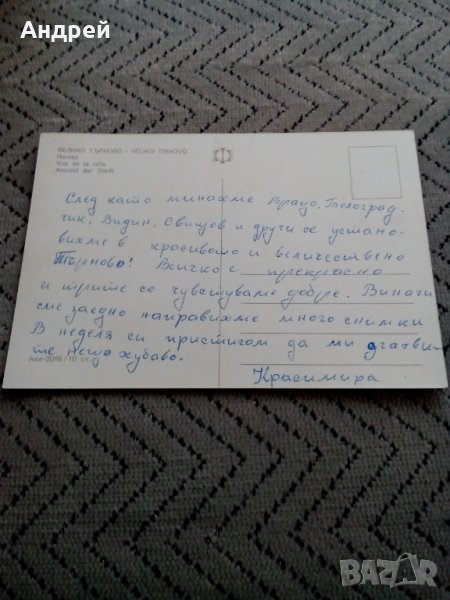 Андрей
ВЕЛИКО ТЪРНОВО - VELIKO TIRNOVO
Изглед
Vue de la ville
Ansicht der Stadt
След като минахме Враца, Белоград-
чик, Видин, Свищов и други се устано-
вихме в красивото и величествено
Търново! Всичко е прекрасно
и трите се чувствуваме добре. Винаги
сме заедно направихме много снимки
В неделя си пристигам да ми сготви-
те нещо хубаво.
Красимира
Акл-2016/10 ст.
BAZAR